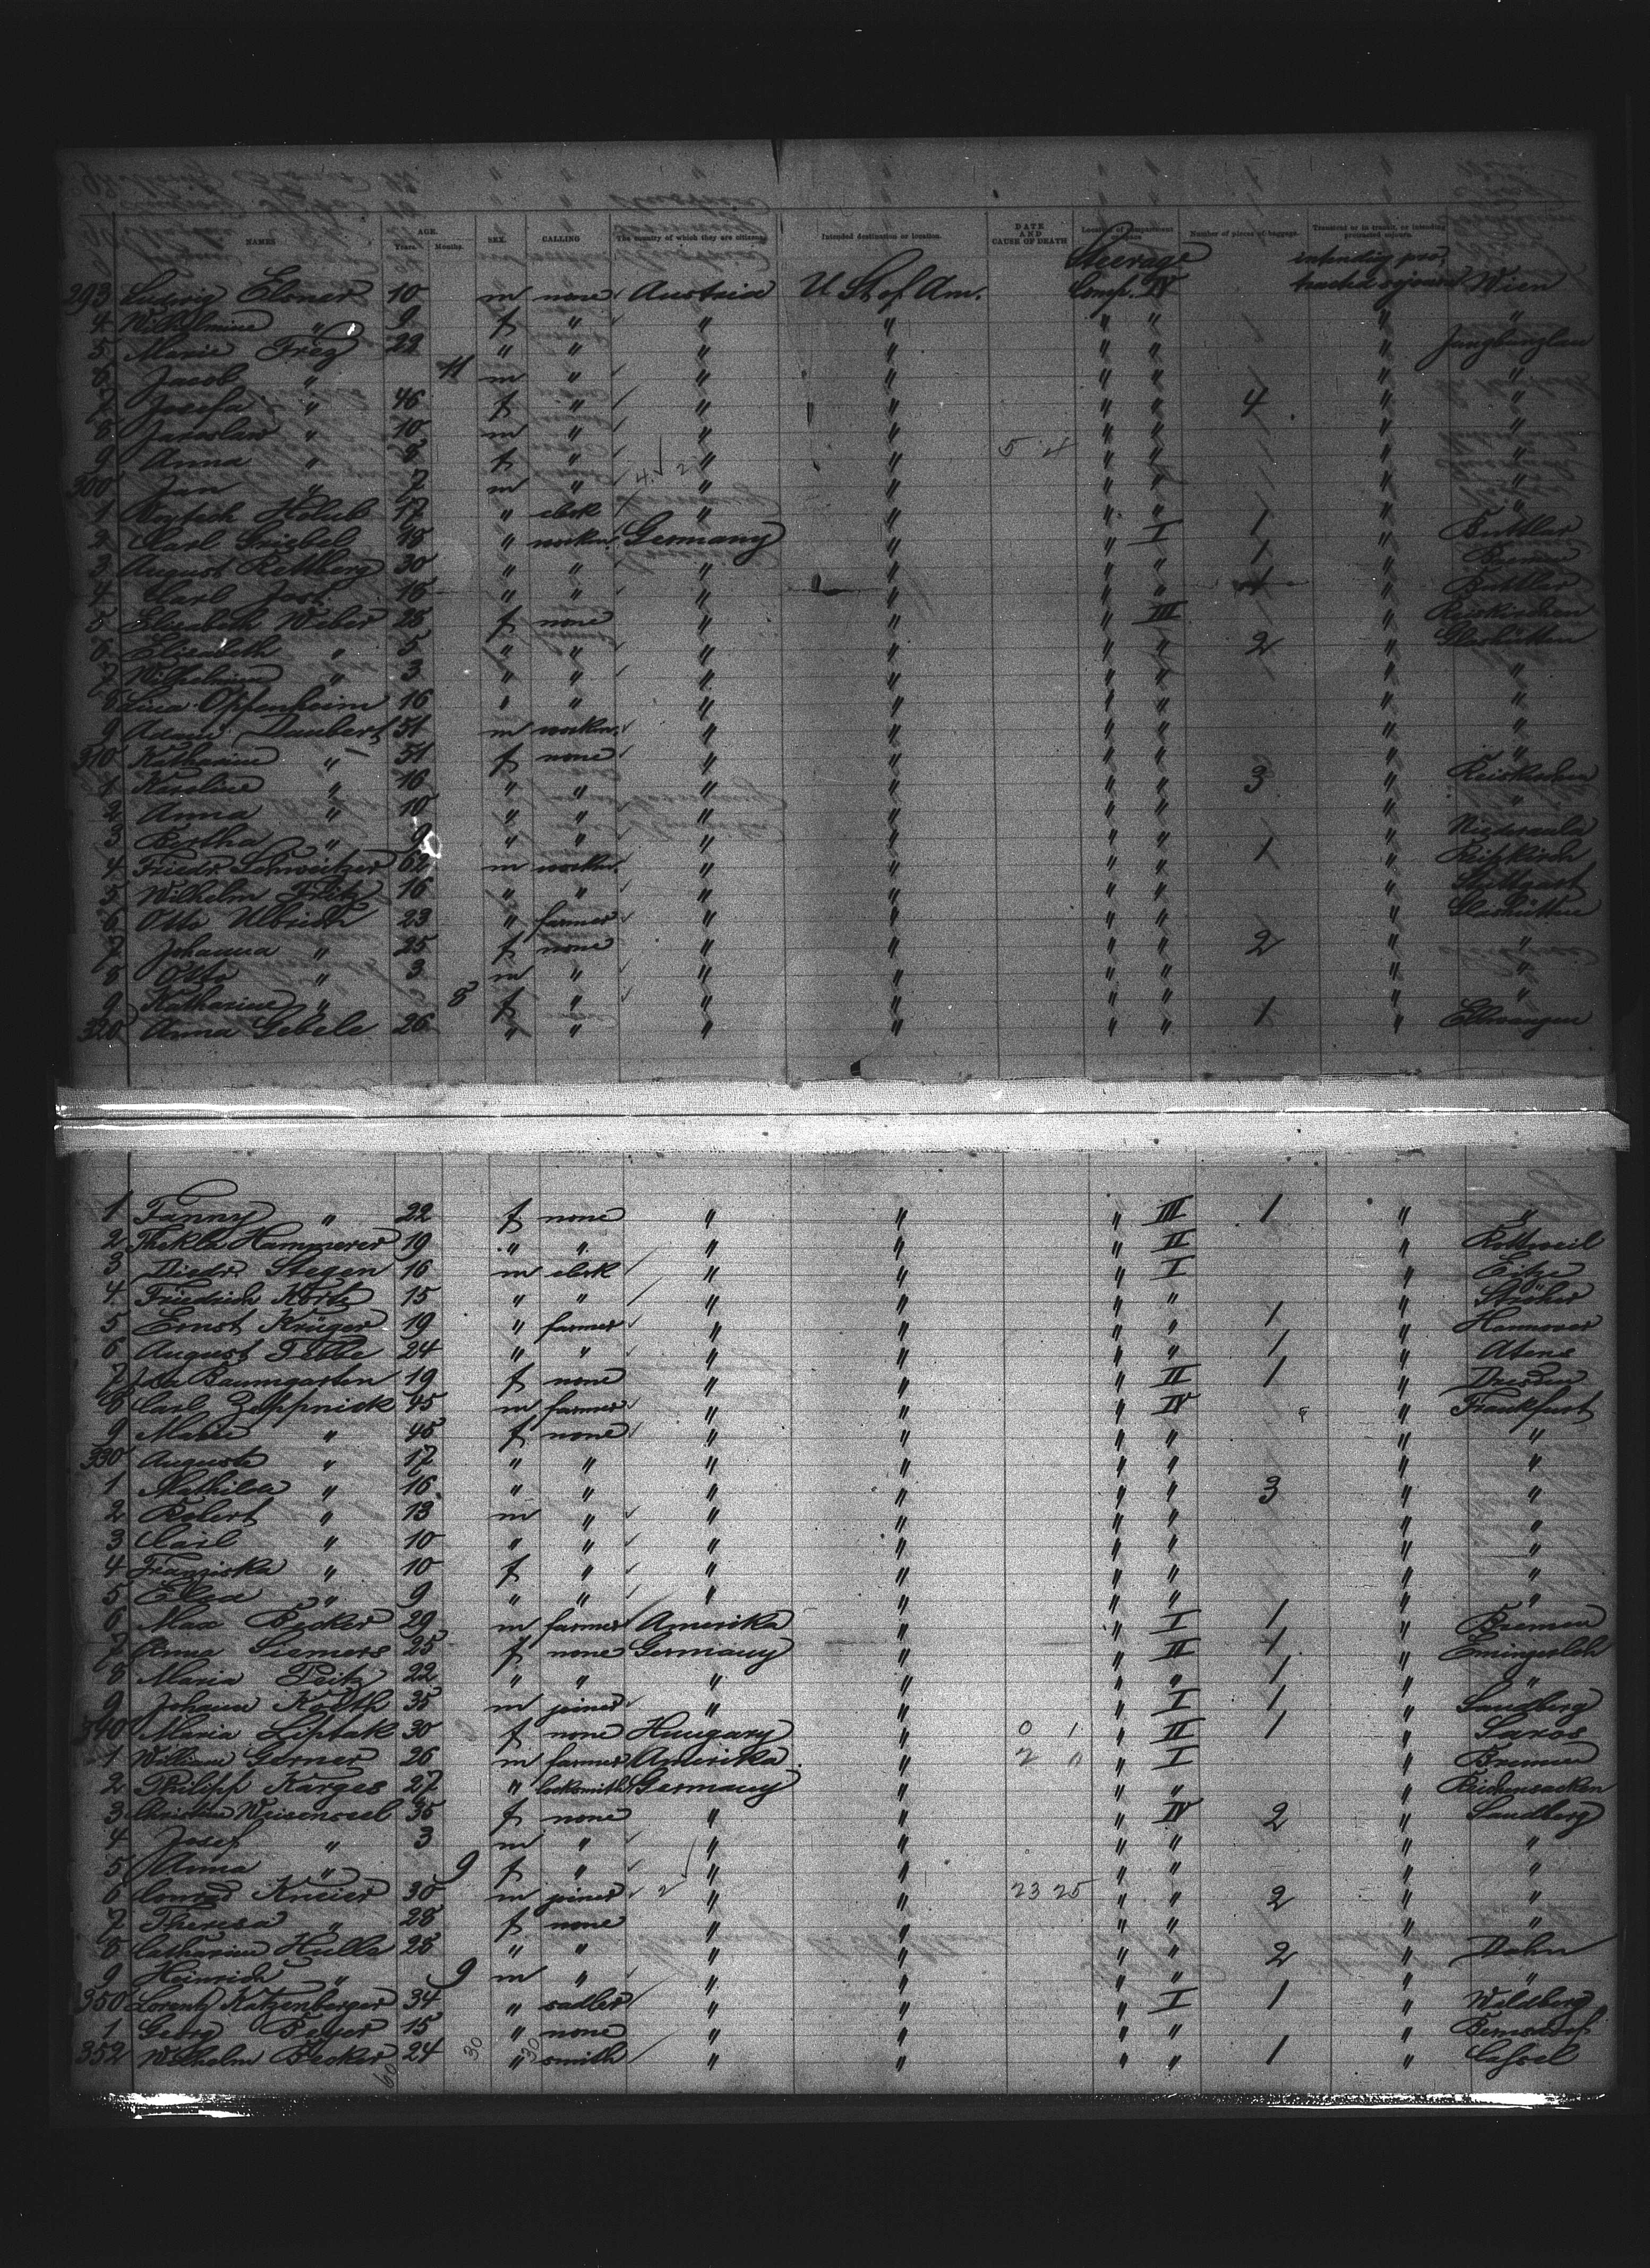 NAMES AGE. Years. Months. SEX. CALLING The country of which they are citizens. Intended destination or location. DATE AND CAUSE OF DEATH Location of compartment or space Number of pieces of baggage. Transient or in transit, or intending protracted sojourn.
Steerage intending pro-
293 Ludwig Elsner 10 m none Austria U. St. of Am. Comp. IV tracted sojourn Wien
4 Wilhelmine " 9 f " " " " " " "
5 Marie 22 " " " " " " " Jungbunzlau
6 Jacob " 11 m " " " " " " "
7 Josefa " 46 f " " " " " 4 " "
8 Jaroslaw " 10 m " " " " " " "
9 Anna " 8 f " " " 5 4 " " " "
300 Jan " 7 m " " " " " " "
1 Holub 17 " clerk " " " " " "
2 Carl Griebel 19 " workm. Germany " " I 1 " Buttlar
3 August Rettberg 30 " " " " " " 1 " Bremen
4 Carl Jost 16 " " " " " " 1 " Buttlar
5 Elisabeth Weber 25 f none " " " III " Reiskirchen
6 Elisabeth " 5 " " " " " " 2 " Glashütten
7 Wilhelmine " 3 " " " " " " " "
8 Lina Oppenheim 16 " " " " " " " "
9 Daubert 51 m workm. " " " " " "
310 Katharine " 51 f none " " " " " "
1 Karoline " 16 " " " " " " 3 " Reiskirchen
2 Anna " 10 " " " " " " " "
3 Bertha " 9 " " " " " " " Niederaula
4 Friedr. Schweitzer 62 m workm. " " " " 1 "
5 Wilhelm Fritz 16 " " " " " " " Stuttgart
6 Otto Ulbrich 23 " farmer " " " " " Glashütten
7 Johanna " 25 f none " " " " 2 " "
8 Otto " 3 m " " " " " " "
9 Katharine " 8 f " " " " " " "
320 Anna Gebele 26 " " " " " " 1 " Ellwangen
1 Fanny " 22 f none " " " III 1 " "
2 Thekla Hammerer 19 " " " " " II " Rottweil
3 Diedr. Stegen 16 m clerk " " " I "
4 Friedrich Korte 15 " " " " " " " Ströher
5 Ernst Krüger 19 " farmer " " " " 1 " Hannover
6 August Telle 24 " " " " " " 1 " Atens
7 Ida Baumgarten 19 f none " " " II 1 " Dresden
8 Carl Zeppnick 45 m farmer " " " IV " Frankfurt
9 Marie " 45 f none " " " " " "
330 Auguste " 17 " " " " " " " "
1 Mathilde " 16 " " " " " " 3 " "
2 Robert " 13 m " " " " " " "
3 Carl " 10 " " " " " " " "
4 Franziska " 10 f " " " " " " "
5 Elsa " 9 " " " " " " " "
6 Max Becker 29 m farmer Amerika " " I 1 " Bremen
7 Anna Siemers 25 f none Germany " " II 1 "
8 Maria 22 " " " " " " 1 " "
9 Johann 35 m joiner " " " I 1 " Sandberg
340 Maria Liptak 30 f none Hungary " 0 1 " II 1 " Saros
1 William Gerner 26 m farmer Amerika " 2 0 " I " Bremen
2 Philipp Karges 27 " locksmith Germany " " " "
3 Christine Weisensel 35 f none " " " IV 2 " Sandberg
4 Josef " 3 m " " " " " " "
5 Anna " 9 f " " " " " " "
6 Conrad 30 m joiner 2 " " 23 25 " " 2 " "
7 Theresa " 28 f none " " " " " "
8 Catharine Hulla 25 " " " " " " 2 " Dahn
9 Heinrich " 9 m " " " " " " "
350 Lorentz Katzenberger 34 " sadler " " " I 1 " Wildberg
1 Georg Beyer 15 " none " " " " "
352 Wilhelm Becker 24 " smith " " " " 1 " Cassel
60 30 30